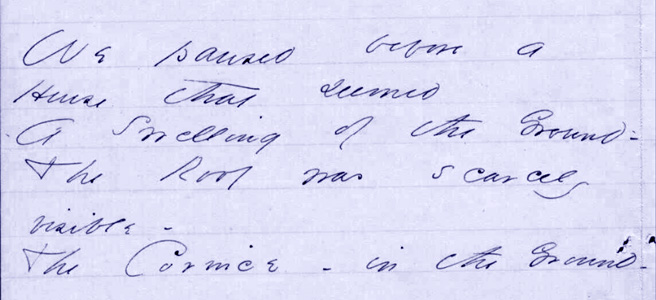 We paused before a
House that seemed
A Swelling of the Ground -
The Roof was scarcely
visible -
The Cornice - in the Ground -